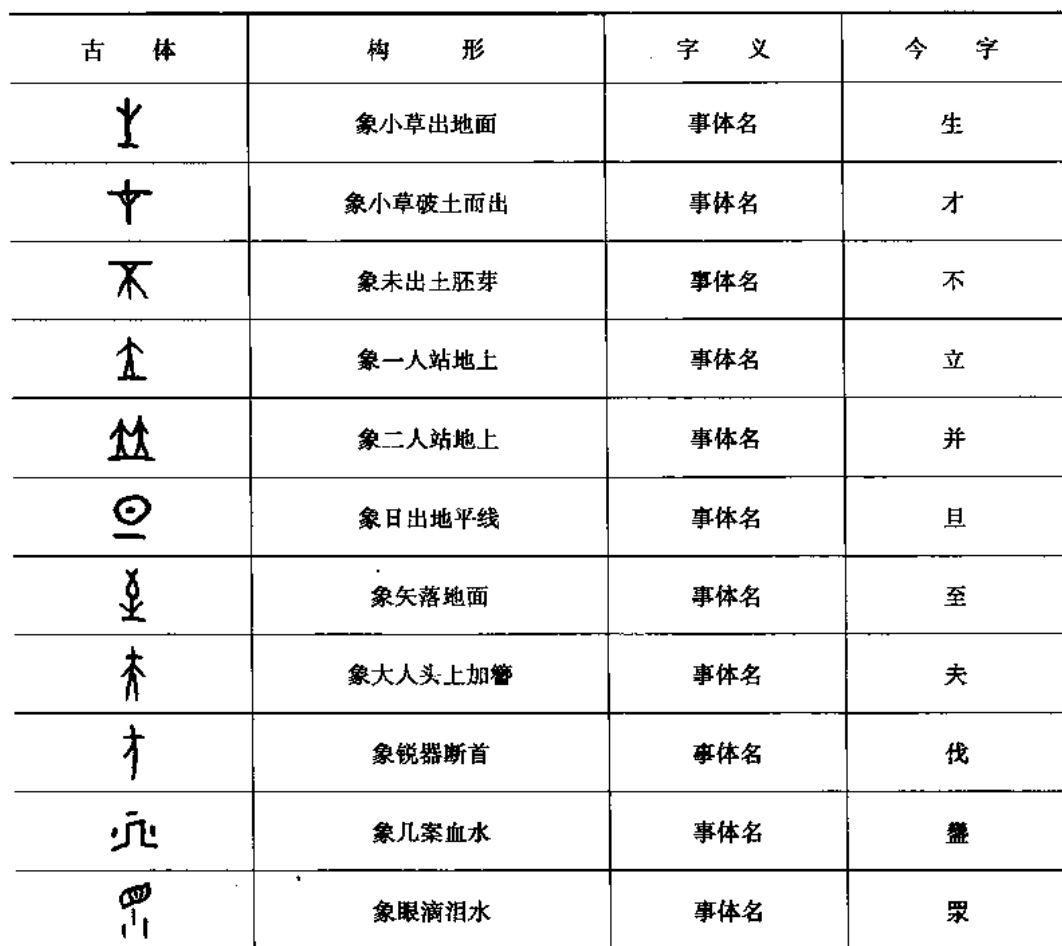 古体 构形 字义 今字
象小草出地面 事体名 生
象小草破土而出 事体名 才
象未出土胚芽 事体名 不
象一人站地上 事体名 立
象二人站地上 事体名 并
象日出地平线 事体名 旦
象矢落地面 事体名 至
象大人头上加簪 事体名 夫
象锐器断首 事体名 伐
象几案血水 事体名
象眼滴泪水 事体名 眔